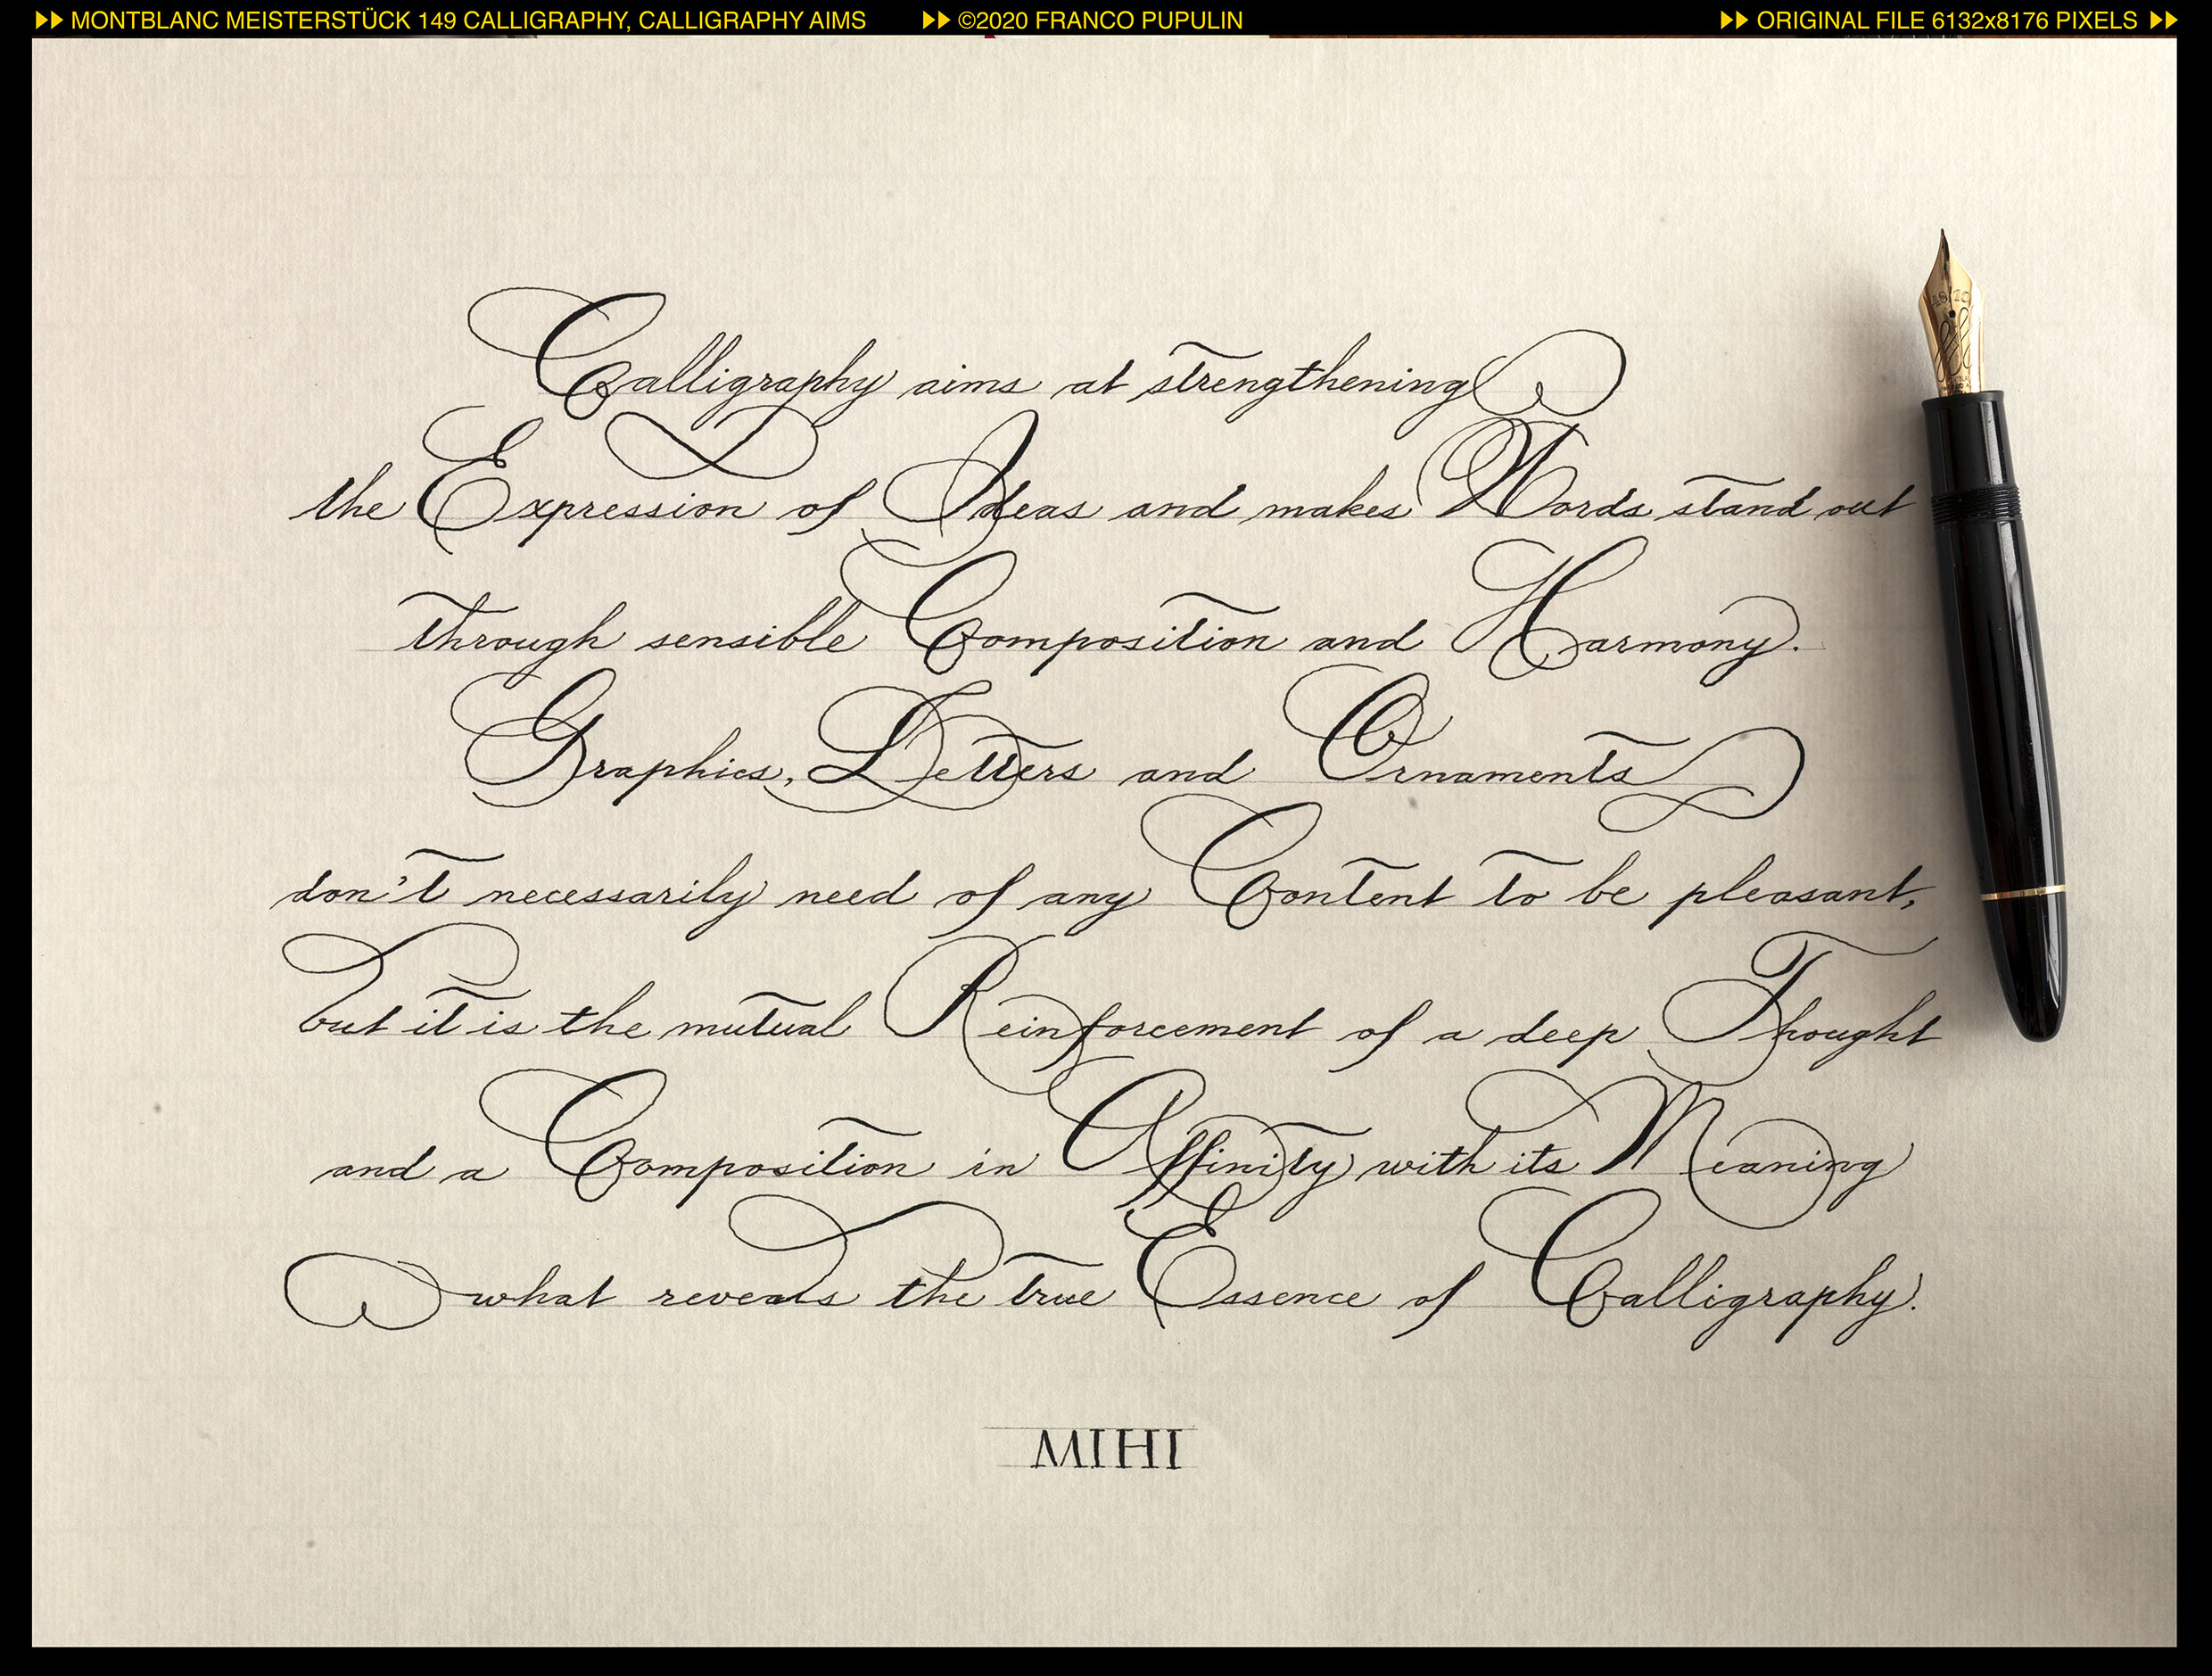 MONTBLANC MEISTERSTÜCK 149 CALLIGRAPHY, CALLIGRAPHY AIMS ©2020 FRANCO PUPULIN ORIGINAL FILE 6132x8176 PIXELS
Calligraphy aims at strengthening
the Expression of Ideas and makes Words stand out
through sensible Composition and Harmony.
Graphics, Letters and Ornaments
don't necessarily need of any Content to be pleasant,
but it is the mutual Reinforcement of a deep Thought
and a Composition in Affinity with its Meaning
what reveals the true Essence of Calligraphy.
MIHI